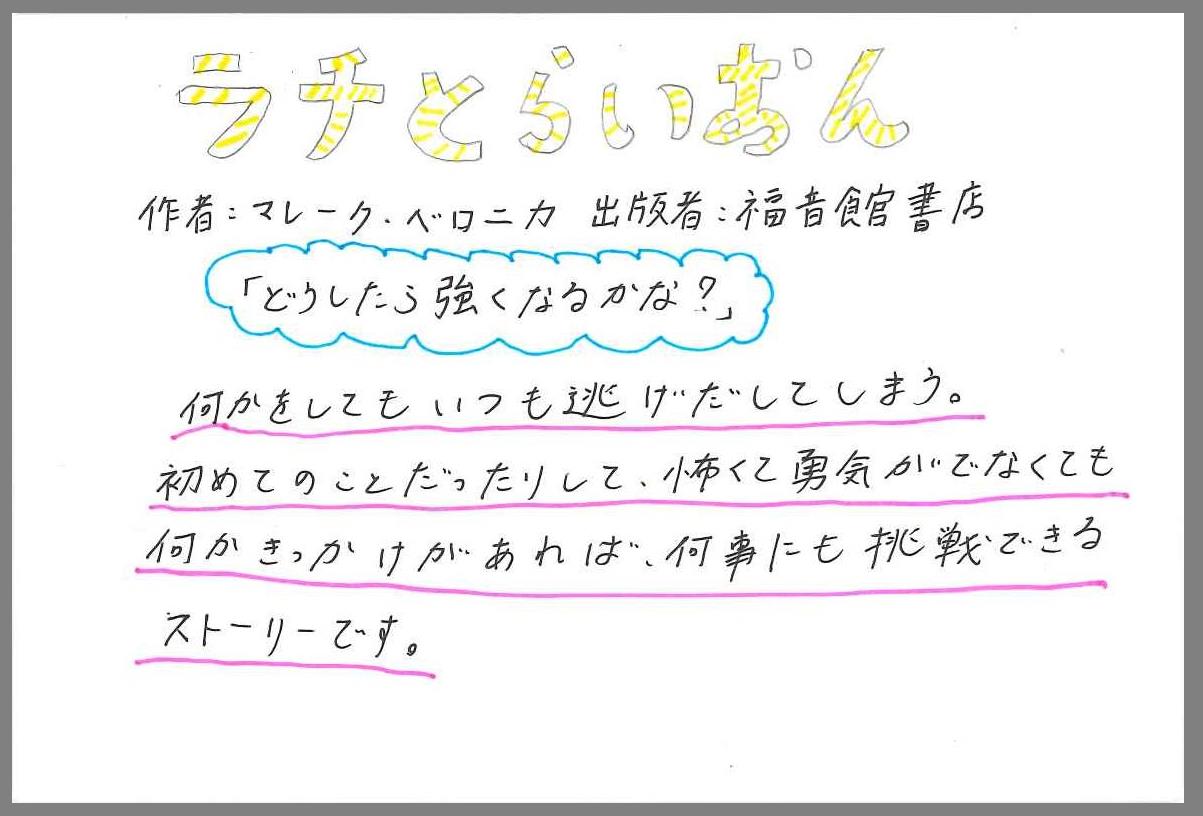 ラチとらいおん
作者:マレーク・ベロニカ 出版者:福音館書店
「どうしたら強くなるかな?」
何かをしてもいつも逃げだしてしまう。
初めてのことだったりして、怖くて勇気がでなくても
何かきっかけがあれば、何事にも挑戦できる
ストーリーです。